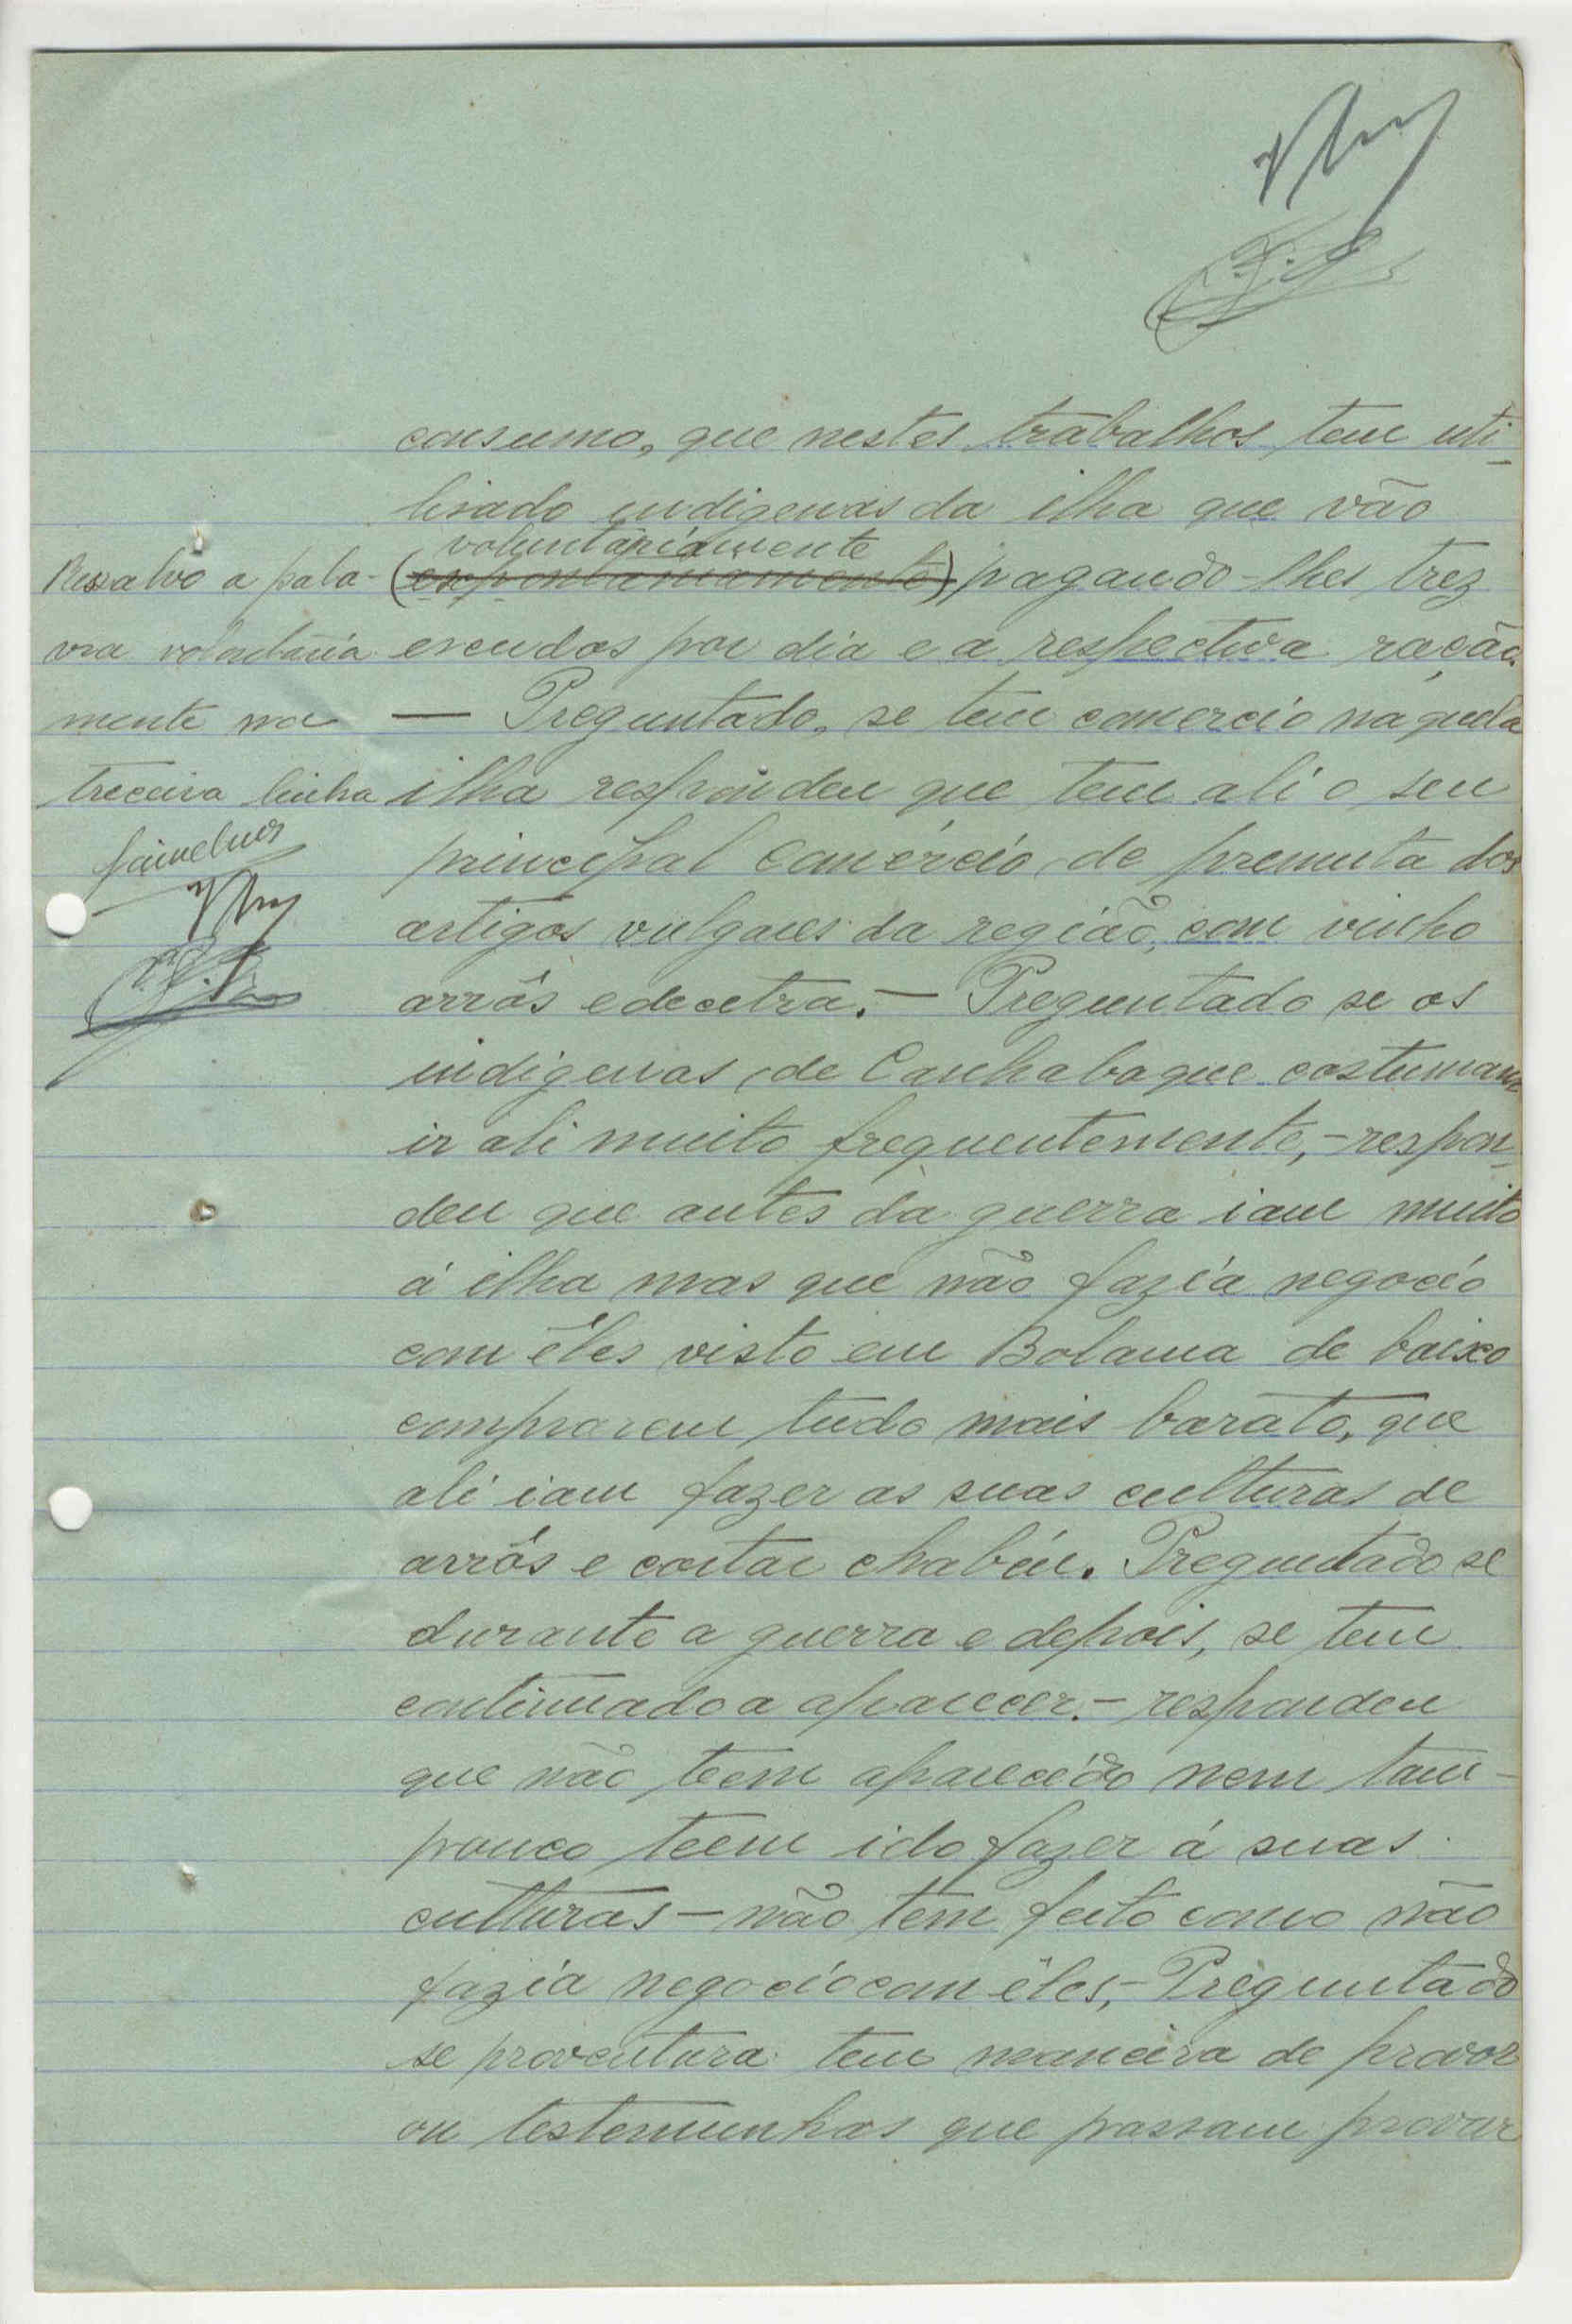 consumo, que nestes trabalhos tem uti-
lisado indigenas da ilha que vão
voluntáriamente
(espontaniamente) pagando-lhes trez
escudos por dia e a respectiva ração.
— Preguntado, se tem comercio naquela
ilha respondeu que tem ali o seu
principal comércio de premuta dos
artigos vulgares da região, com vinho
arrôs edecetra. — Preguntado se os
indigenas de Canhabaque costumam
ir ali muito frequentemente, — respon-
deu que antes da guerra iam muito
á ilha mas que não fazía negocio
com êles visto em Bolama de baixo
comprarem tudo mais barato, que
ali iam fazer as suas culturas de
arrôs e cortar chabéu. Preguntado se
durante a guerra e depois, se tem
continuado a aparecer. — respondeu
que não teem aparecido nem tam-
pouco teem ido fazer á suas
culturas — não tem feito como não
fazia negocio com êles, — Preguntado
se proventura tem maneira de provar
ou testemunhas que possam provar
Ressalvo a pala-
vra voluntária
mente na
treceira linha